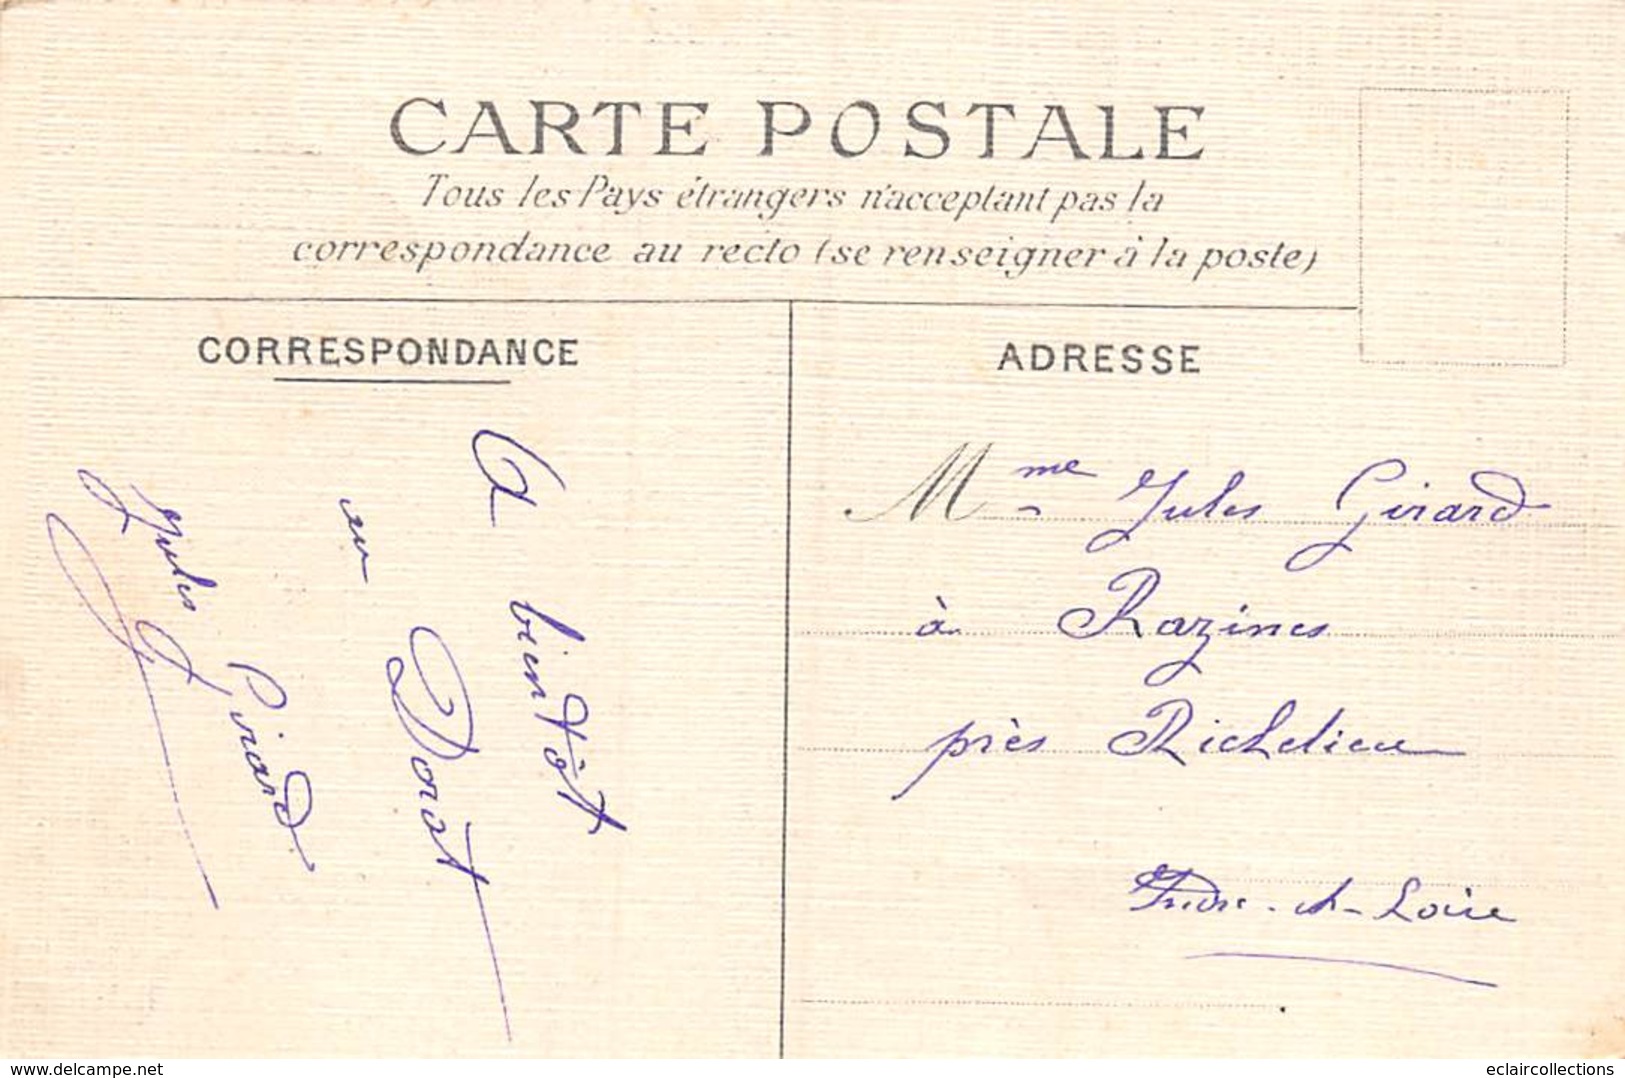 CARTE POSTALE
Tous les Pays étrangers n'acceptant pas la
correspondance au recto (se renseigner à la poste)
CORRESPONDANCE
A bientôt
au Dorat
Jules Girard
ADRESSE
Mme Jules Girard
à Razines
près Richelieu
Indre-et-Loire
www.delcampe.net
eclaircollections